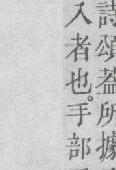 詩頌蓋所據
入者也。手部